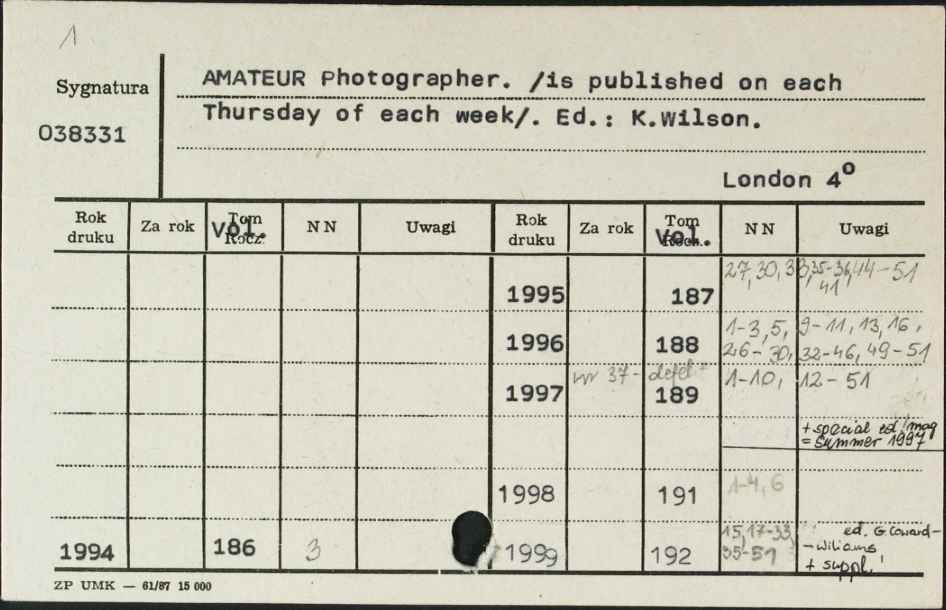 1
Sygnatura
038331
AMATEUR Photographer. /is published on each
Thursday of each week/. Ed.: K.Wilson.
London 4°
Rok druku Za rok Tom Rocz. Vol. NN Uwagi Rok druku Za rok Tom Rocz. Vol. NN Uwagi
1995 187 27, 30, 33, 35-36, 44-51
41
1996 188 1-3, 5, 9-11, 13, 16,
26-30, 32-46, 49-51
nr 37- defekt
1997 189 1-10, 12-51
+ special ed. mag
= Summer 1997
1998 191 1-4, 6
1994 186 3 1999 192 15, 17-33,
35-51
ed. G. Coward-
-Wiliams
+ suppl.
ZP UMK — 61/87 15 000